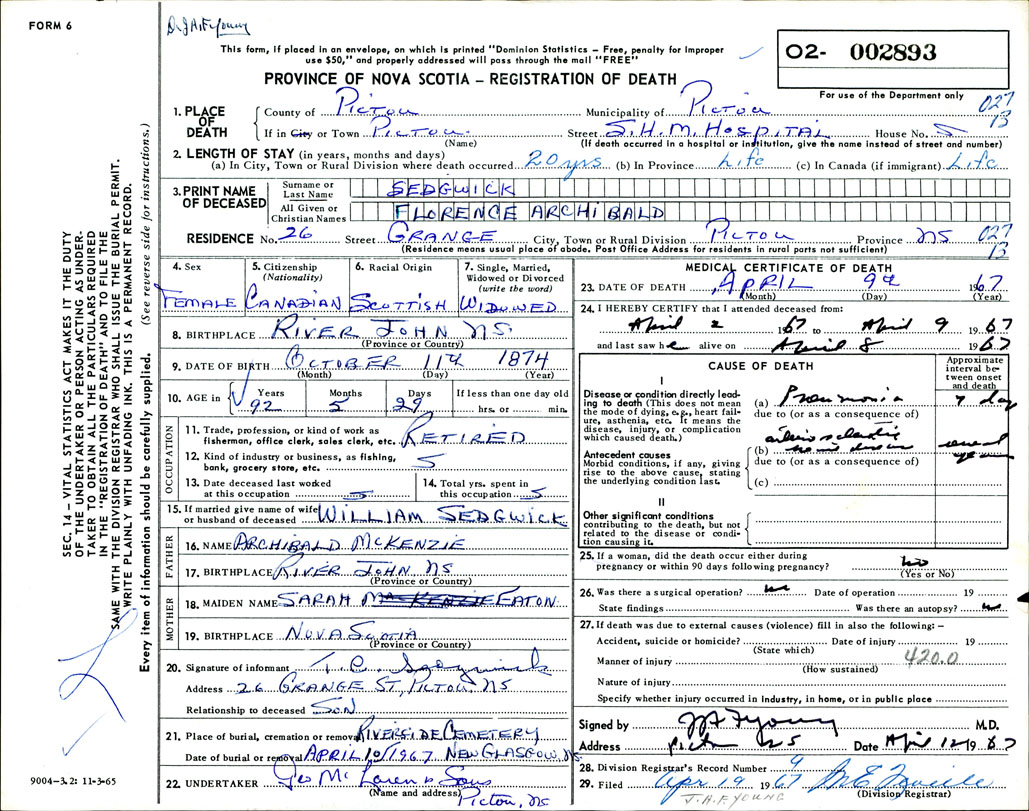 FORM 6
Dr JAF Young
This form, if placed in an envelope, on which is printed "Dominion Statistics – Free, penalty for improper
use $50," and properly addressed will pass through the mail "FREE"
O2- 002893
PROVINCE OF NOVA SCOTIA – REGISTRATION OF DEATH
For use of the Department only
027
13
1. PLACE OF DEATH
County of PICTOU Municipality of PICTOU
If in City or Town PICTOU Street S.H.M. HOSPITAL House No. S
(Name) (If death occurred in a hospital or institution, give the name instead of street and number)
2. LENGTH OF STAY (in years, months and days)
(a) In City, Town or Rural Division where death occurred 20 yrs (b) In Province Life (c) In Canada (if immigrant) Life
3. PRINT NAME OF DECEASED
Surname or Last Name SEDGWICK
All Given or Christian Names FLORENCE ARCHIBALD
RESIDENCE No. 26 Street GRANGE City, Town or Rural Division PICTOU Province NS 027
13
(Residence means usual place of abode. Post Office Address for residents in rural parts not sufficient)
4. Sex 5. Citizenship (Nationality) 6. Racial Origin 7. Single, Married, Widowed or Divorced (write the word)
FEMALE CANADIAN SCOTTISH WIDOWED
8. BIRTHPLACE RIVER JOHN NS
(Province or Country)
9. DATE OF BIRTH OCTOBER 11th 1874
(Month) (Day) (Year)
10. AGE in Years Months Days If less than one day old
92 5 29 hrs. or min.
OCCUPATION
11. Trade, profession, or kind of work as
fisherman, office clerk, sales clerk, etc. RETIRED
12. Kind of industry or business, as fishing,
bank, grocery store, etc. S
13. Date deceased last worked
at this occupation S
14. Total yrs. spent in
this occupation S
15. If married give name of wife
or husband of deceased WILLIAM SEDGWICK
FATHER
16. NAME ARCHIBALD MCKENZIE
17. BIRTHPLACE RIVER JOHN NS
(Province or Country)
MOTHER
18. MAIDEN NAME SARAH MACKENZIE EATON
19. BIRTHPLACE NOVA SCOTIA
(Province or Country)
20. Signature of informant T. C.
Address 26 GRANGE ST, PICTOU, NS
Relationship to deceased SON
21. Place of burial, cremation or removal RIVERSIDE CEMETERY
Date of burial or removal APRIL 10/1967 NEW GLASGOW, NS.
22. UNDERTAKER Geo McLaren & Sons
(Name and address) Pictou, NS
MEDICAL CERTIFICATE OF DEATH
23. DATE OF DEATH APRIL 9th 1967
(Month) (Day) (Year)
24. I HEREBY CERTIFY that I attended deceased from:
April 2 1967 to April 9 1967
and last saw he alive on April 8 1967
CAUSE OF DEATH
Approximate interval between onset and death
I
Disease or condition directly leading to death (This does not mean the mode of dying, e.g., heart failure, asthenia, etc. It means the disease, injury, or complication which caused death.)
(a) Pneumonia 7 day
due to (or as a consequence of)
Antecedent causes
Morbid conditions, if any, giving rise to the above cause, stating the underlying condition last.
arteriosclerotic
(b) heart disease several years
due to (or as a consequence of)
(c)
II
Other significant conditions
contributing to the death, but not related to the disease or condition causing it.
25. If a woman, did the death occur either during
pregnancy or within 90 days following pregnancy? no
(Yes or No)
26. Was there a surgical operation? no Date of operation 19
State findings Was there an autopsy? no
27. If death was due to external causes (violence) fill in also the following: –
Accident, suicide or homicide? Date of injury 19
(State which)
Manner of injury 420.0
(How sustained)
Nature of injury
Specify whether injury occurred in industry, in home, or in public place
Signed by JAF Young M.D.
Address Pictou NS Date April 12 1967
28. Division Registrar's Record Number 9
29. Filed Apr 19 1967
(Division Registrar)
J.A.F. YOUNG
SEC. 14 – VITAL STATISTICS ACT MAKES IT THE DUTY
OF THE UNDERTAKER OR PERSON ACTING AS UNDER-
TAKER TO OBTAIN ALL THE PARTICULARS REQUIRED
IN THE "REGISTRATION OF DEATH" AND TO FILE THE
SAME WITH THE DIVISION REGISTRAR WHO SHALL ISSUE THE BURIAL PERMIT.
WRITE PLAINLY WITH UNFADING INK. THIS IS A PERMANENT RECORD.
Every item of information should be carefully supplied. (See reverse side for instructions.)
9004–3.2: 11-3-65